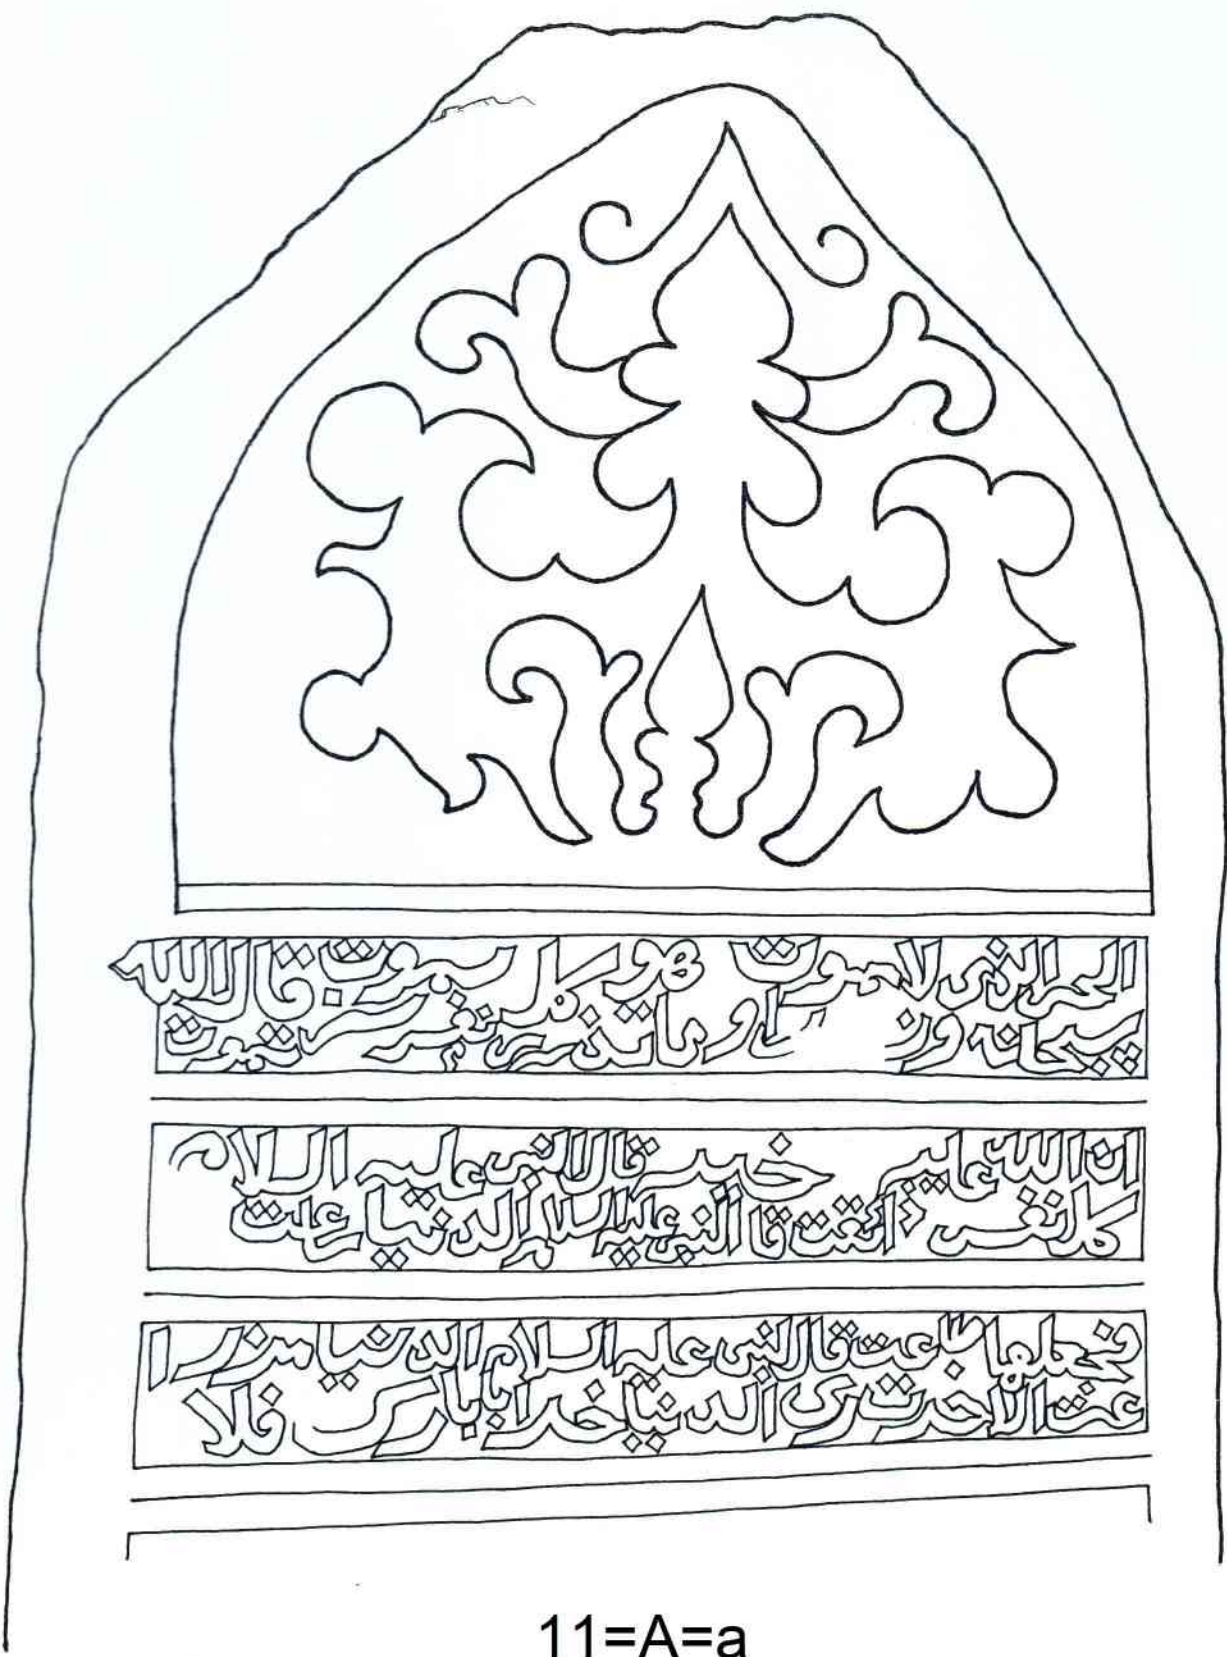 الحى الذى لا يموت هو كل سيموت قال الله
سبحانه و وما تدرى نفس تموت
ان الله عليم خبير قال النبى عليه السلام
كل نفس ذائقت قال النبى عليه السلام الدنيا ساعت
فجعلها طاعت قال النبى عليه السلام الدنيا مزرا
عت الاخرت الدنيا فلا
11=A=a